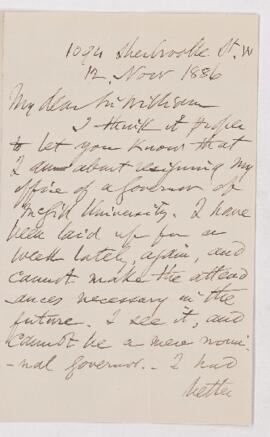 1094 Sherbrooke St. W
12 Novr 1886
My dear Sir William
I think it proper
to let you know that
I am about resigning my
office of a governor of
McGill University. I have
been laid up for a
week lately, again, and
cannot make the attend
ances necessary in the
future. I see it, and
cannot be a mere nomi
-nal governor. - I had
better